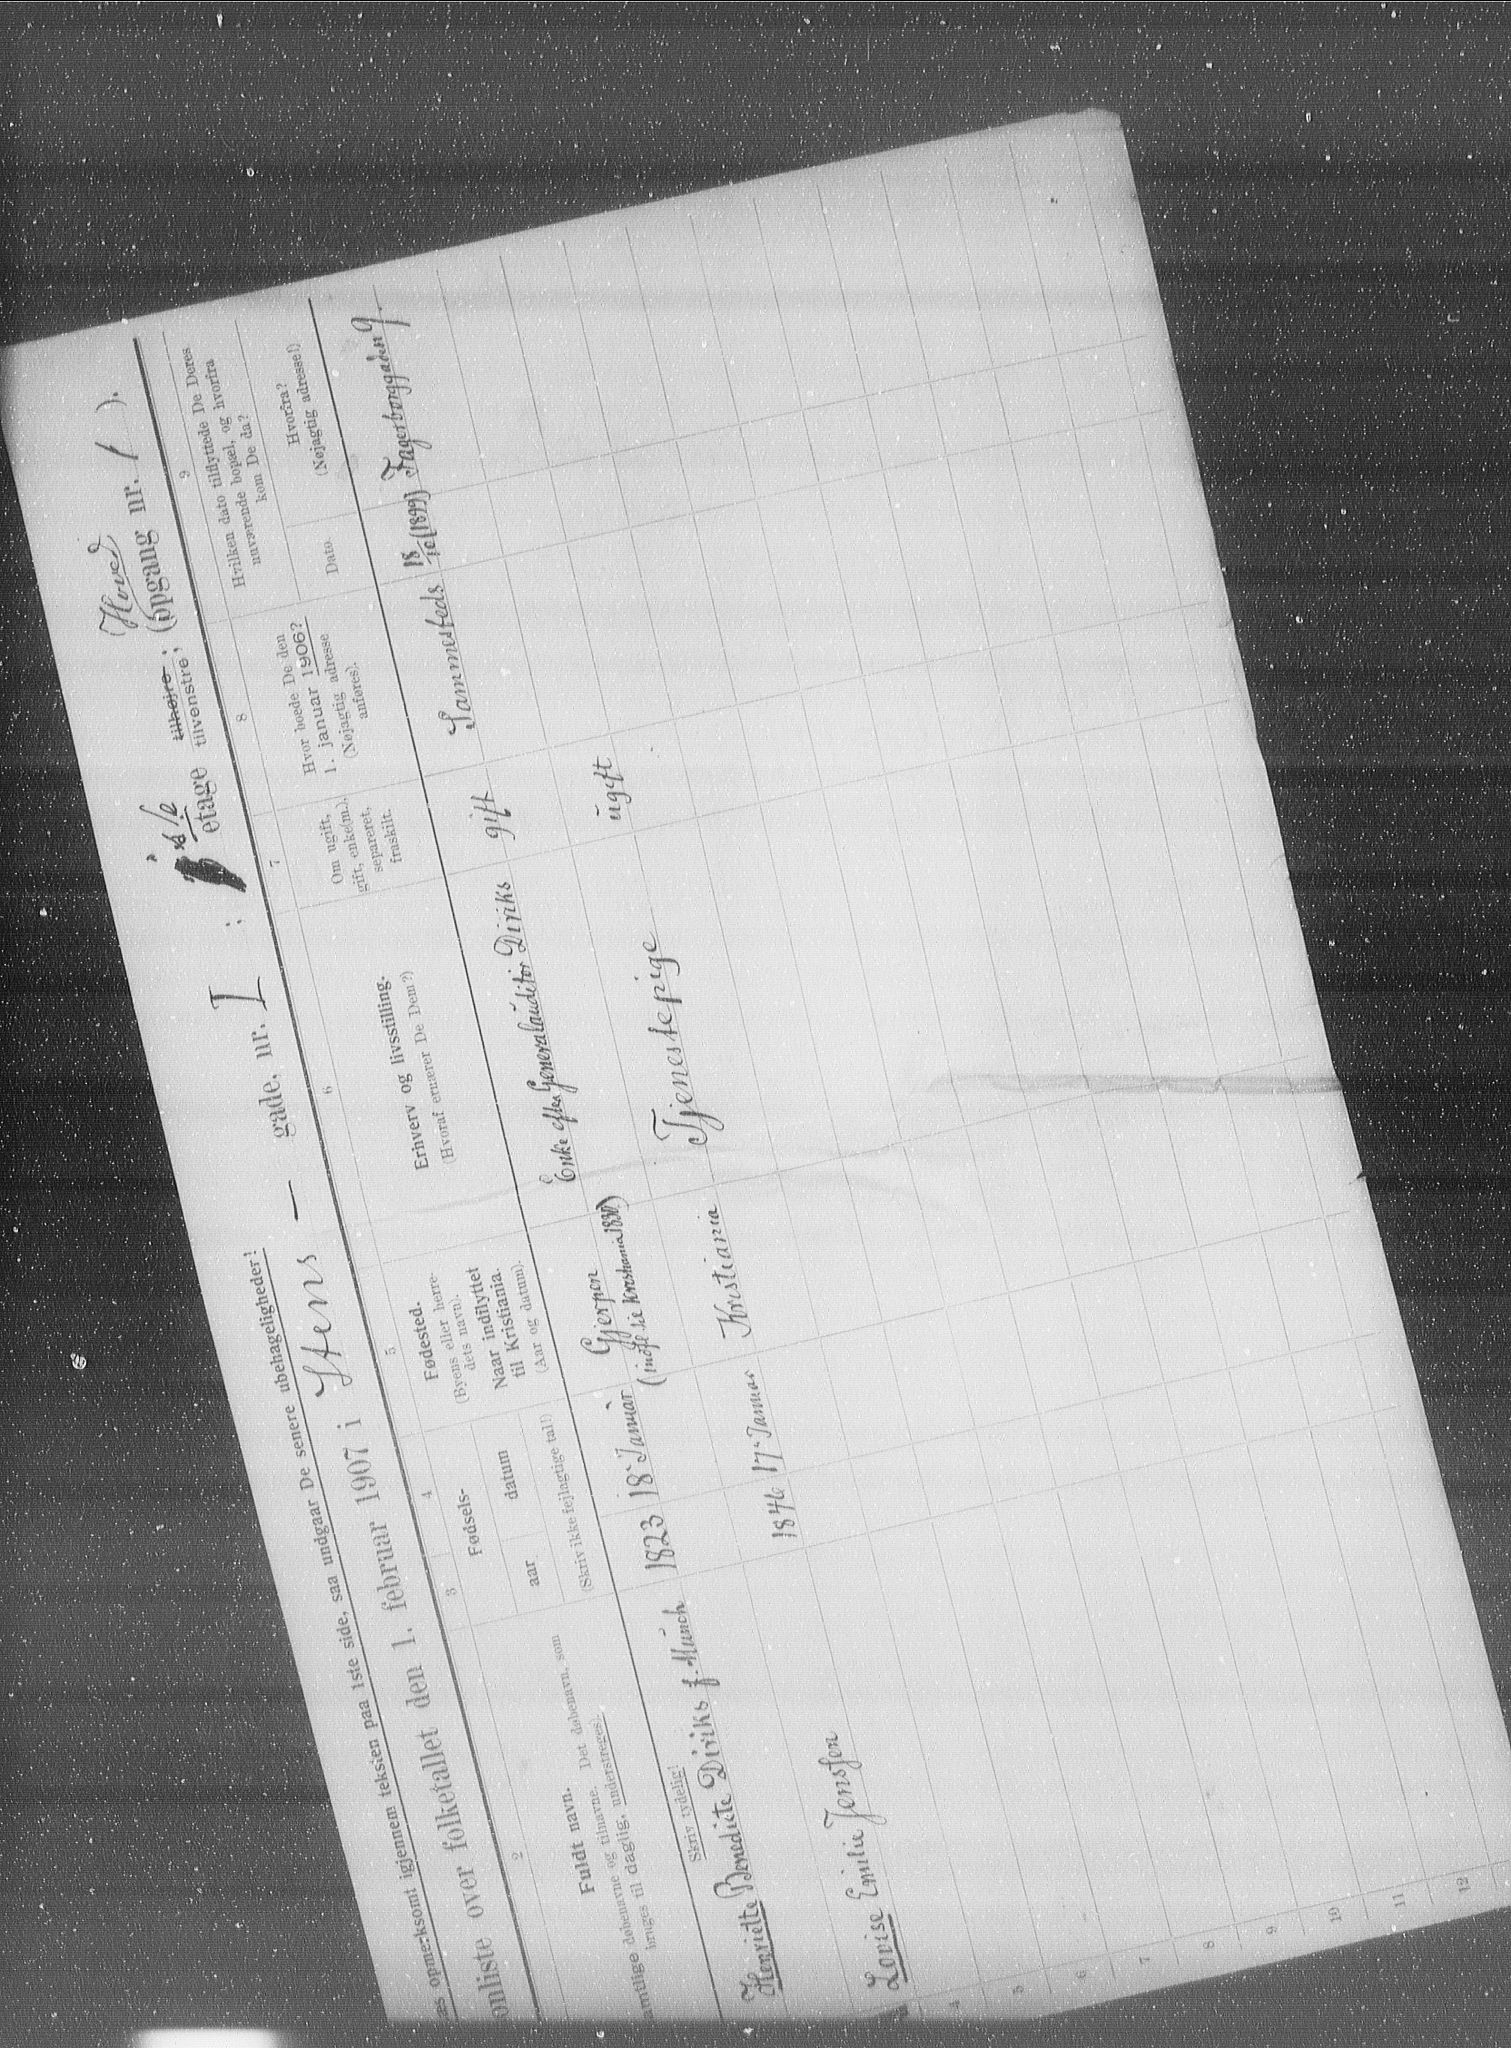 æs opmerksomt igjennem teksten paa 1ste side, saa undgaar De senere ubehageligheder!
onliste over folketallet den 1. februar 1907 i Stens — gade, nr. 1 ; etage tilhøjre ; tilvenstre; (Hoved opgang nr. 1 ).
2
Fuldt navn.
amtlige døbenavne og tilnavne. Det døbenavn, som
bruges til daglig, understreges).
Skriv tydelig!
3
4
Fødsels-
aar
datum
(Skriv ikke fejlagtige tal!)
5
Fødested.
(Byens eller herre-
dets navn).
Naar indflyttet
til Kristiania.
(Aar og datum).
6
Erhverv og livsstilling.
(Hvoraf ernærer De Dem?)
7
Om ugift,
gift, enke(m.),
separeret,
fraskilt.
8
Hvor boede De den
1. januar 1906?
(Nøjagtig adresse
anføres).
9
Hvilken dato tilflyttede De Deres
nuværende bopæl, og hvorfra
kom De da?
Dato.
Hvorfra?
(Nøjagtig adresse!)
Henriette Benedicte Diriks f. Münch 1823 18. Januar Gjerpen Enke efter Generalauditør Diriks gift Sammesteds 18/10 (1899) Fagerborggaden 9.
(indfl. til Kristiania 1830)
Lovise Emilie Jensen 1846 17. Januar Kristiania Tjenestepige ugift
4
5
6
7
8
9
10
11
12